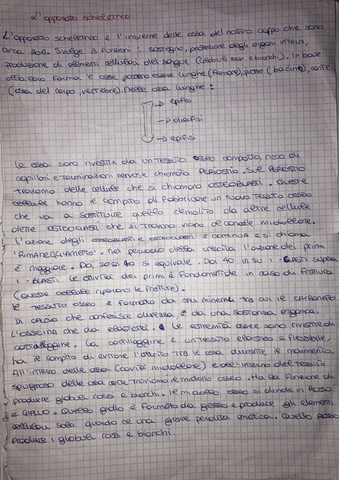 L'apparato scheletrico
L'apparato scheletrico è l'insieme delle ossa del nostro corpo che sono
circa 206. Svolge 3 funzioni: sostegno, protezione degli organi interni,
produzione di elementi cellulari del sangue (globuli rossi e bianchi). In base
alla loro forma le ossa possono essere lunghe (femore), piatte (bacino), corte
(ossa del corpo, vertebre). Nelle ossa lunghe:
→ epifisi
→ diafisi
→ epifisi
Le ossa sono rivestite da un tessuto osseo compatto, ricco di
capillari e terminazioni nervose chiamato PERIOSTIO. Sul periostio
troviamo delle cellule che si chiamano OSTEOBLASTI. Queste
cellule hanno il compito di fabbricare un nuovo tessuto osseo
che va a sostituire quello demolito da altre cellule
dette OSTEOCLASTI che si trovano vicino al canale midollare.
L'azione degli osteoblasti e osteoclasti è continua e si chiama
"RIMANEGGIAMENTO". Nel periodo della crescita l'azione dei primi
è maggiore. Dai 20 ai 40 si equivale. Dai 40 in su i -clasti supera
i -blasti. Le attività dei primi è fondamentale in caso di frattura
(queste cellule riparano le fratture).
Il tessuto osseo è formato da sali minerali tra cui il carbonato
di calcio che conferisce durezza, e da una sostanza organica,
l'osseina che dà elasticità. Le estremità ossee sono rivestite di
cartilaggine. La cartilaggine è un tessuto elastico e flessibile,
ha il compito di evitare l'attrito tra le ossa durante i movimenti.
All'interno delle ossa (cavità midollare) e all'interno del tessuto
spugnoso delle ossa corte troviamo il midollo osseo. Ha la funzione di
produrre globuli rossi e bianchi. Il midollo osseo si divide in rosso
e giallo. Quello giallo è formato da grasso e produce gli elementi
cellulari solo quando c'è una grave perdita ematica. Quello rosso
produce i globuli rossi e bianchi.